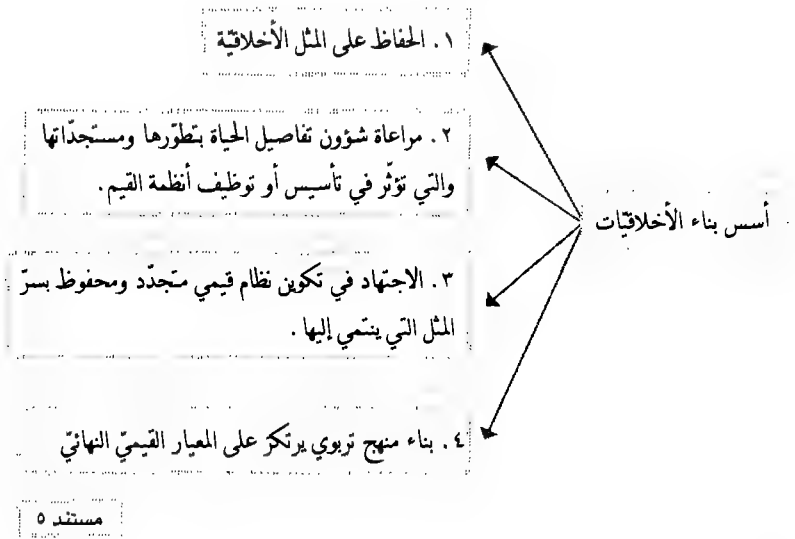 أسس بناء الأخلاقيّات
١. الحفاظ على المثل الأخلاقيّة
٢. مراعاة شؤون تفاصيل الحياة بتطوّرها ومستجدّاتها
والتي تؤثّر في تأسيس أو توظيف أنظمة القيم.
٣. الاجتهاد في تكوين نظام قيمي متجدّد ومحفوظ بسرّ
المثل التي ينتمي إليها.
٤. بناء منهج تربوي يرتكز على المعيار القيميّ النهائيّ
مستند ٥